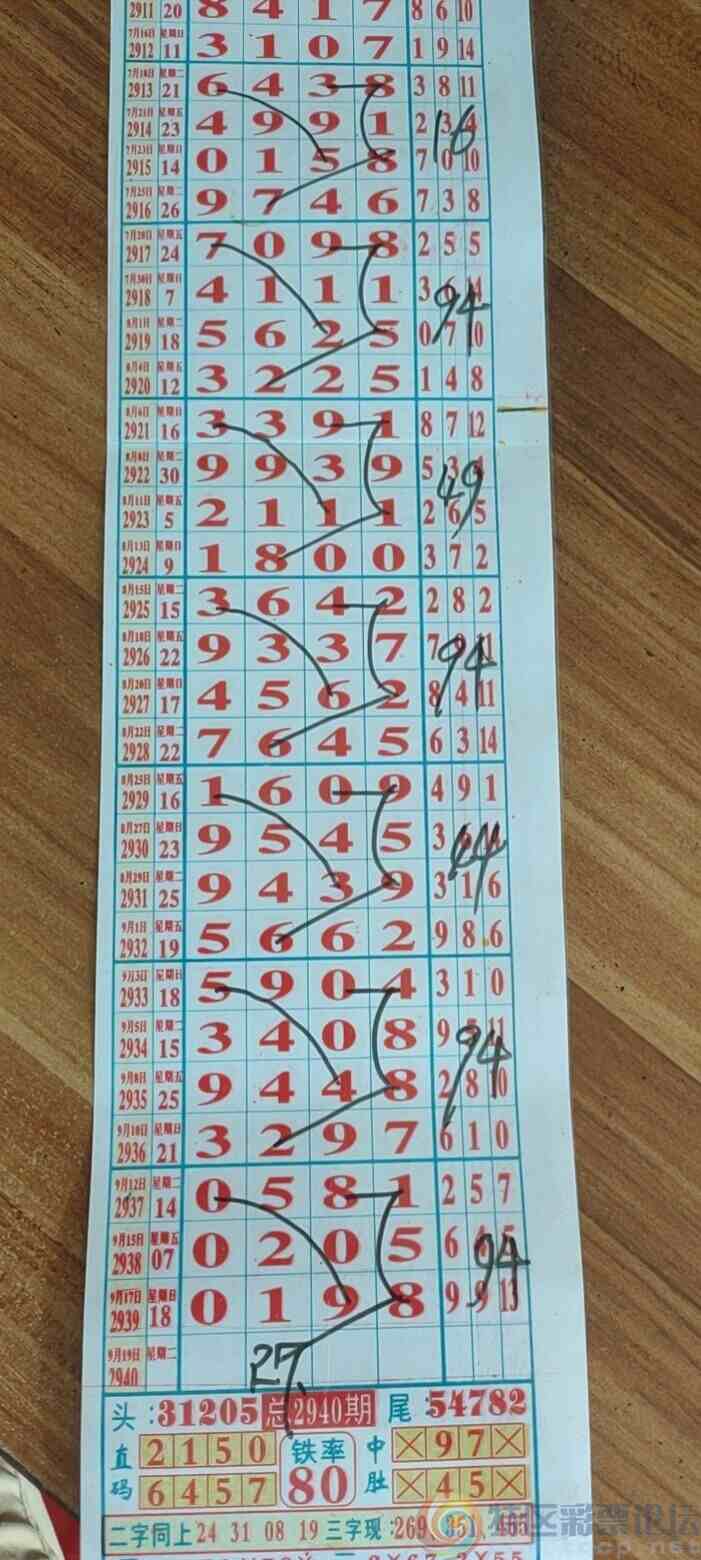 2911 20 8 4 1 7 8 6 10
7月16日 星期日 2912 11 3 1 0 7 1 9 14
7月18日 星期二 2913 21 6 4 3 8 3 8 11
7月21日 星期五 2914 23 4 9 9 1 2 3 4
16
7月23日 星期日 2915 14 0 1 5 8 7 0 10
7月25日 星期二 2916 26 9 7 4 6 7 3 8
7月28日 星期五 2917 24 7 0 9 8 2 5 5
7月30日 星期日 2918 7 4 1 1 1 3 6 4
94
8月1日 星期二 2919 18 5 6 2 5 0 7 0
8月4日 星期五 2920 12 3 2 2 5 1 4 8
8月6日 星期日 2921 16 3 3 9 1 8 7 12
8月8日 星期二 2922 30 9 9 3 9 5 3
49
8月11日 星期五 2923 5 2 1 1 1 2 6 5
8月13日 星期日 2924 9 1 8 0 0 3 7 2
8月15日 星期二 2925 15 3 6 4 2 2 8 2
8月18日 星期五 2926 22 9 3 3 7 7
94
8月20日 星期日 2927 17 4 5 6 2 8 4 11
8月22日 星期二 2928 22 7 6 4 5 6 3 14
8月25日 星期五 2929 16 1 6 0 9 4 9 1
8月27日 星期日 2930 23 9 5 4 5 3
44
8月29日 星期二 2931 25 9 4 3 9 3 1 6
9月1日 星期五 2932 19 5 6 6 2 9 8 6
9月3日 星期日 2933 18 5 9 0 4 3 1 0
9月5日 星期二 2934 15 3 4 0 8 9 5 11
94
9月8日 星期五 2935 25 9 4 4 8 2 8 10
9月10日 星期日 2936 21 3 2 9 7 6 1 0
9月12日 星期二 2937 14 0 5 8 1 2 5 7
9月15日 星期五 2938 07 0 2 0 5 6 4 5
94
9月17日 星期日 2939 18 0 1 9 8 9 9 13
9月19日 星期二 2940
27
头:31205 总2940期 尾:54782
直码 2150 铁率 中肚 ×97×
6457 80 ×45×
二字同上 24 31 08 19 三字现: 269 351 465
特区彩票论坛